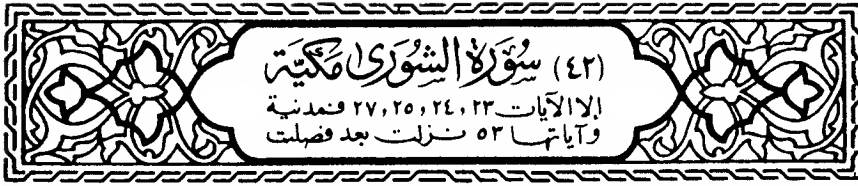 (٤٢) سُوْرَة الشورىٰ مكيّة
إلا الآيات ٢٣، ٢٤، ٢٥، ٢٧ فمدنية
وآياتها ٥٣ نزلت بعد فصلت